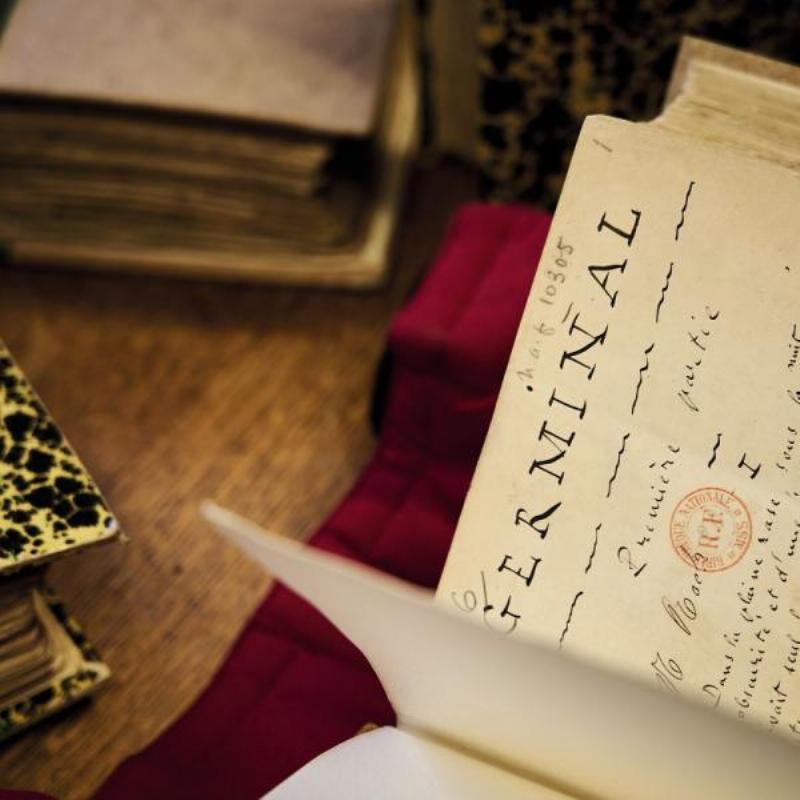 1
n.a.f. 10305
GERMINAL
Première partie
I
BIBLIOTHÈQUE NATIONALE MSS
R.F.
Dans la plaine rase, sous la nuit
obscurité et d'une
vait seul